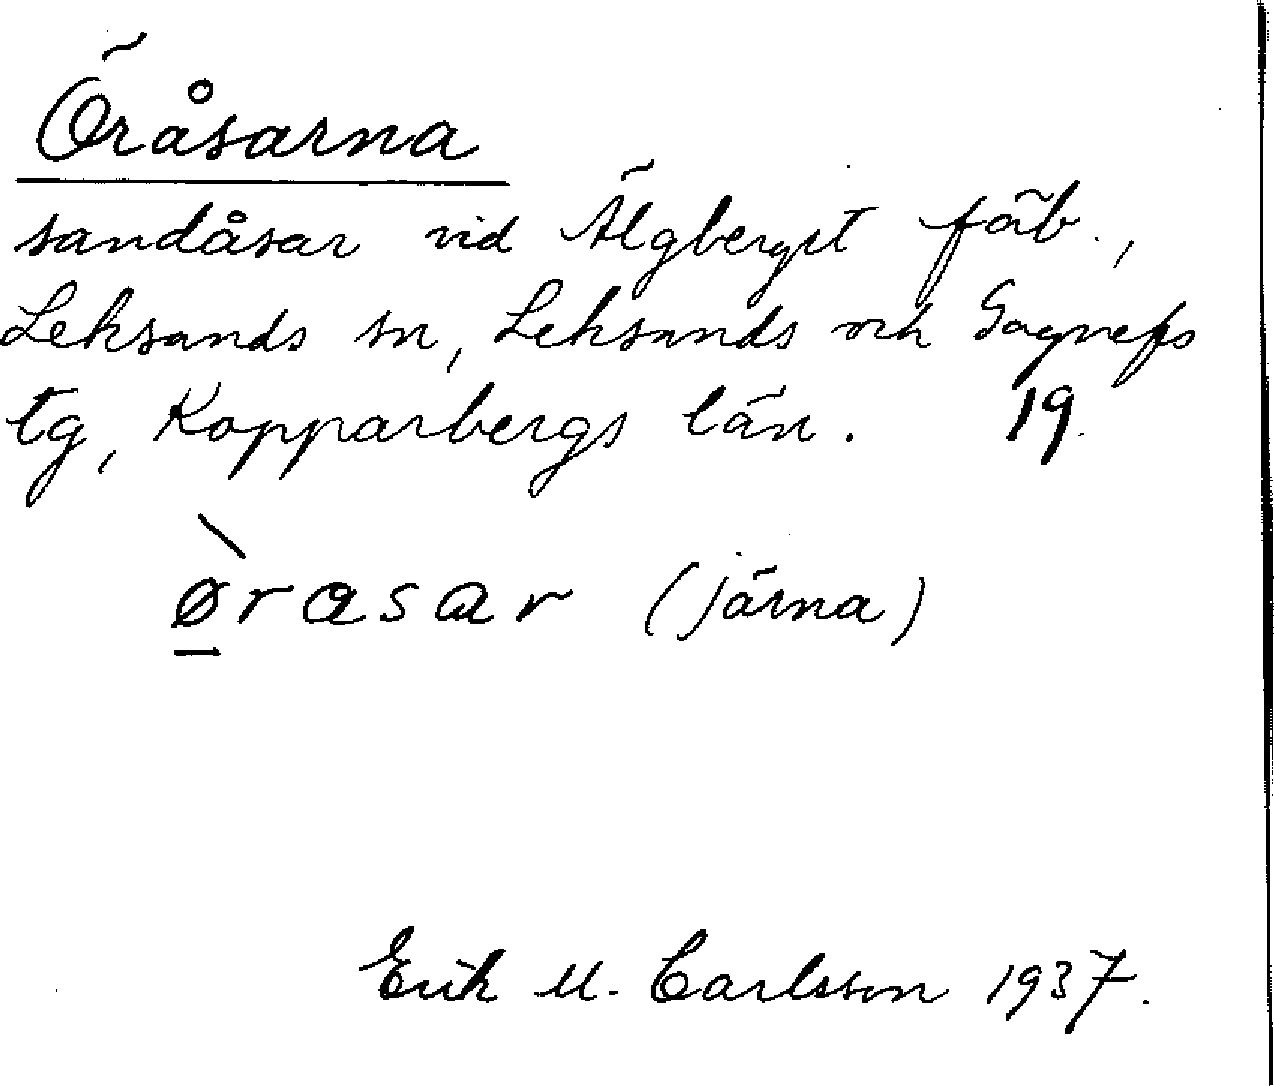 Öråsarna
sandåsar vid Älgberget fäb.,
Leksands sn, Leksands och Gagnefs
tg, Kopparbergs län. 19.
ø̱̀rasar (järna)
Erik M. Carlsson 1937.